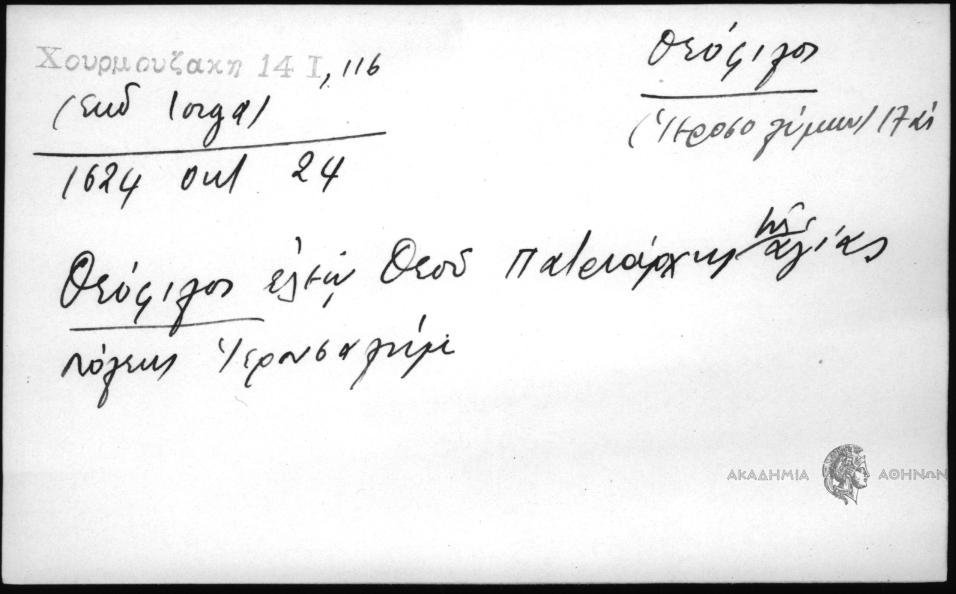 Χουρμουζακη 14 I, 116
(εκδ Iorga)
1624 οκτ 24
Θεόφιλος
(Ἱεροσολύμων) 17 αἰ
Θεόφιλος ἐλέῳ Θεοῦ Πατριάρχης τῆς ἁγίας
πόλεως Ἱερουσαλήμ
ΑΚΑΔΗΜΙΑ ΑΘΗΝΩΝ